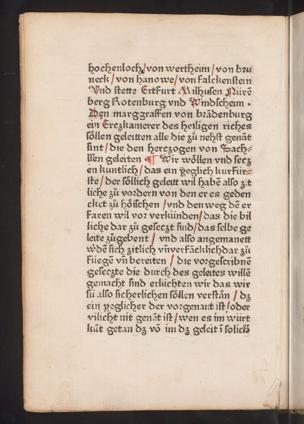 hochenloch/ von wertheim/ von bru
neck/ von hanowe/ von falckenstein
Vnd stette Ertfurt Milhusen Nürē
berg Rotenburg vnd Windscheim •
Den marggraffen von brādenburg
ein Ertzkamerer des heiligen riches
söllen geleitten alle die zu nehst genāt
sint/ die den hertzogen von Sach-
ssen geleiten ¶ Wir wöllen vnd setz
en kuntlich/ das ein yeglich kurfür-
ste/ der söllich geleit wil habē also zit
liche zu vordern von den er es geden
cket zu höischen/ vnd den weg dē er
Faren wil vor verkündē/ das die bil
liche dar zü gesetzt sind/ das selbe ge
leite zügebent/ vnd also angemanett
wdē sich zitlich vn̄ verfäcklich dar zü
fliegē vn̄ bereiten/ die vorgescribnē
gesetzte die durch des geleites willē
gemacht sind erlüchten wir das wir
sü also sicherlichen söllen verstān/ dz
ein yeglicher der vorgenant ist/ oder
vilicht nit genāt ist/ wen es im würt
kūt getan dz vō im dz geleit ī solichē